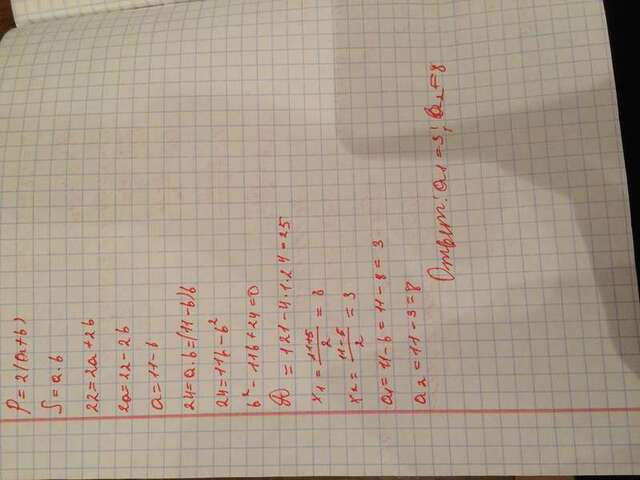 P = 2(a+b)
S = a·b
22 = 2a + 2b
2a = 22 - 2b
a = 11 - b
24 = a·b = (11 - b)b
24 = 11b - b²
b² - 11b + 24 = 0
D = 121 - 4·1·24 = 25
x₁ = (11+5)/2 = 8
x₂ = (11-5)/2 = 3
a₁ = 11 - b = 11 - 8 = 3
a₂ = 11 - 3 = 8
Ответ: a₁ = 3; a₂ = 8